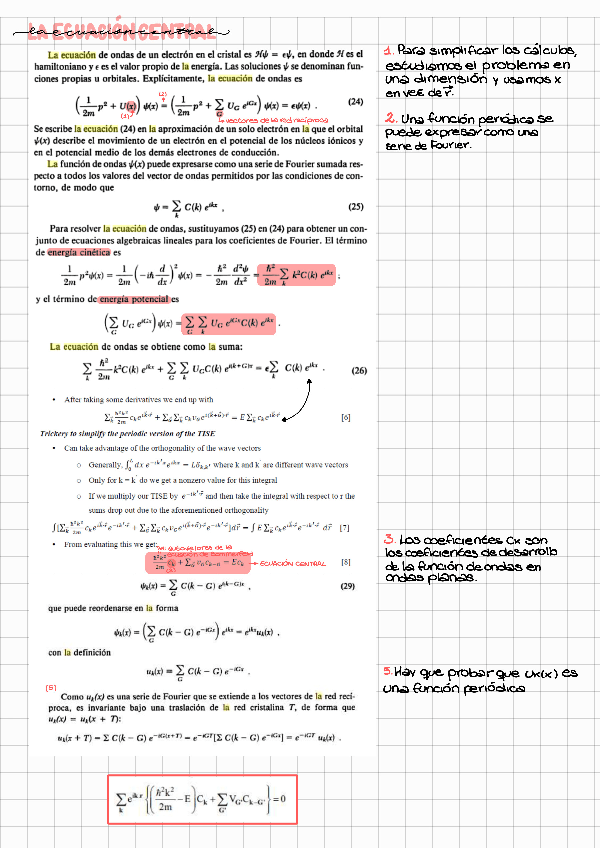 LA ECUACIÓN CENTRAL
La ecuación de ondas de un electrón en el cristal es ℋψ = εψ, en donde ℋ es el
hamiltoniano y ε es el valor propio de la energía. Las soluciones ψ se denominan fun-
ciones propias u orbitales. Explícitamente, la ecuación de ondas es
(1/2m p² + U(x)) ψ(x) = (1/2m p² + Σ_G U_G e^{iGx}) ψ(x) = εψ(x) . (24)
vectores de la red recíproca
Se escribe la ecuación (24) en la aproximación de un solo electrón en la que el orbital
ψ(x) describe el movimiento de un electrón en el potencial de los núcleos iónicos y
en el potencial medio de los demás electrones de conducción.
La función de ondas ψ(x) puede expresarse como una serie de Fourier sumada res-
pecto a todos los valores del vector de ondas permitidos por las condiciones de con-
torno, de modo que
ψ = Σ_k C(k) e^{ikx} , (25)
Para resolver la ecuación de ondas, sustituyamos (25) en (24) para obtener un con-
junto de ecuaciones algebraicas lineales para los coeficientes de Fourier. El término
de energía cinética es
1/2m p²ψ(x) = 1/2m (−iħ d/dx)² ψ(x) = − ħ²/2m d²ψ/dx² = ħ²/2m Σ_k k²C(k) e^{ikx} ;
y el término de energía potencial es
(Σ_G U_G e^{iGx}) ψ(x) = Σ_G Σ_k U_G e^{iGx} C(k) e^{ikx} .
La ecuación de ondas se obtiene como la suma:
Σ_k ħ²/2m k²C(k) e^{ikx} + Σ_G Σ_k U_G C(k) e^{i(k+G)x} = ε Σ_k C(k) e^{ikx} . (26)
• After taking some derivatives we end up with
[6]
Trickery to simplify the periodic version of the TISE
• Can take advantage of the orthogonality of the wave vectors
○ Generally, where k and k' are different wave vectors
○ Only for k = k' do we get a nonzero value for this integral
○ If we multiply our TISE by e^{−ik'·r} and then take the integral with respect to r the
sums drop out due to the aforementioned orthogonality
[7]
• From evaluating this we get:
[8]
→ ECUACIÓN CENTRAL
ψ_k(x) = Σ_G C(k − G) e^{i(k−G)x} , (29)
que puede reordenarse en la forma
ψ_k(x) = (Σ_G C(k − G) e^{−iGx}) e^{ikx} = e^{ikx}u_k(x) ,
con la definición
u_k(x) = Σ_G C(k − G) e^{−iGx} .
[5]
Como u_k(x) es una serie de Fourier que se extiende a los vectores de la red recí-
proca, es invariante bajo una traslación de la red cristalina T, de forma que
u_k(x) = u_k(x + T):
u_k(x + T) = Σ C(k − G) e^{−iG(x+T)} = e^{−iGT}[Σ C(k − G) e^{−iGx}] = e^{−iGT} u_k(x) .
Σ_k e^{ikx} {(ħ²k²/2m − E) C_k + Σ_G' V_G' C_{k−G'}} = 0
1. Para simplificar los cálculos,
estudiamos el problema en
una dimensión y usamos x
en vez de r⃗.
2. Una función periódica se
puede expresar como una
serie de Fourier.
3. Los coeficientes Ck son
los coeficientes de desarrollo
de la función de ondas en
ondas planas.
5. Hay que probar que uk(x) es
una función periódica